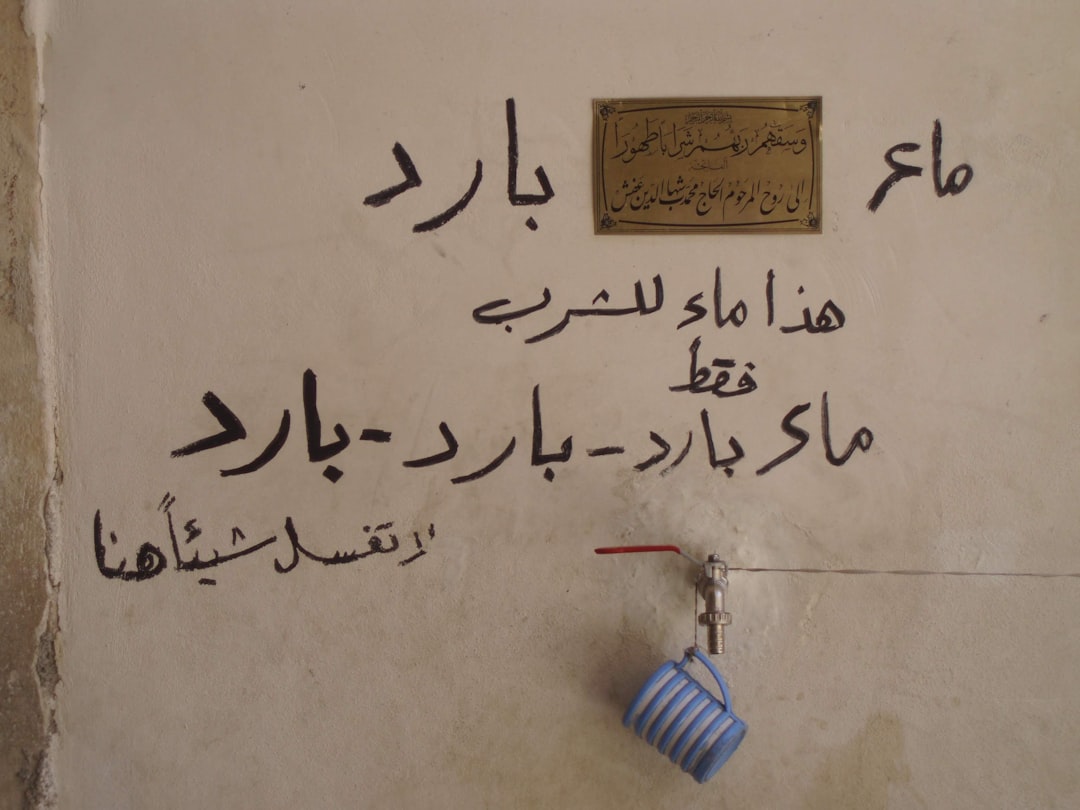 ماء بارد
بسم الله الرحمن الرحيم
وسقهم ربهم شرابا طهورا
الفاتحة
إلى روح المرحوم الحاج محمد شهاب الدين عنش
هذا ماء للشرب
فقط
ماء بارد - بارد - بارد
لا تغسل شيئاً هنا